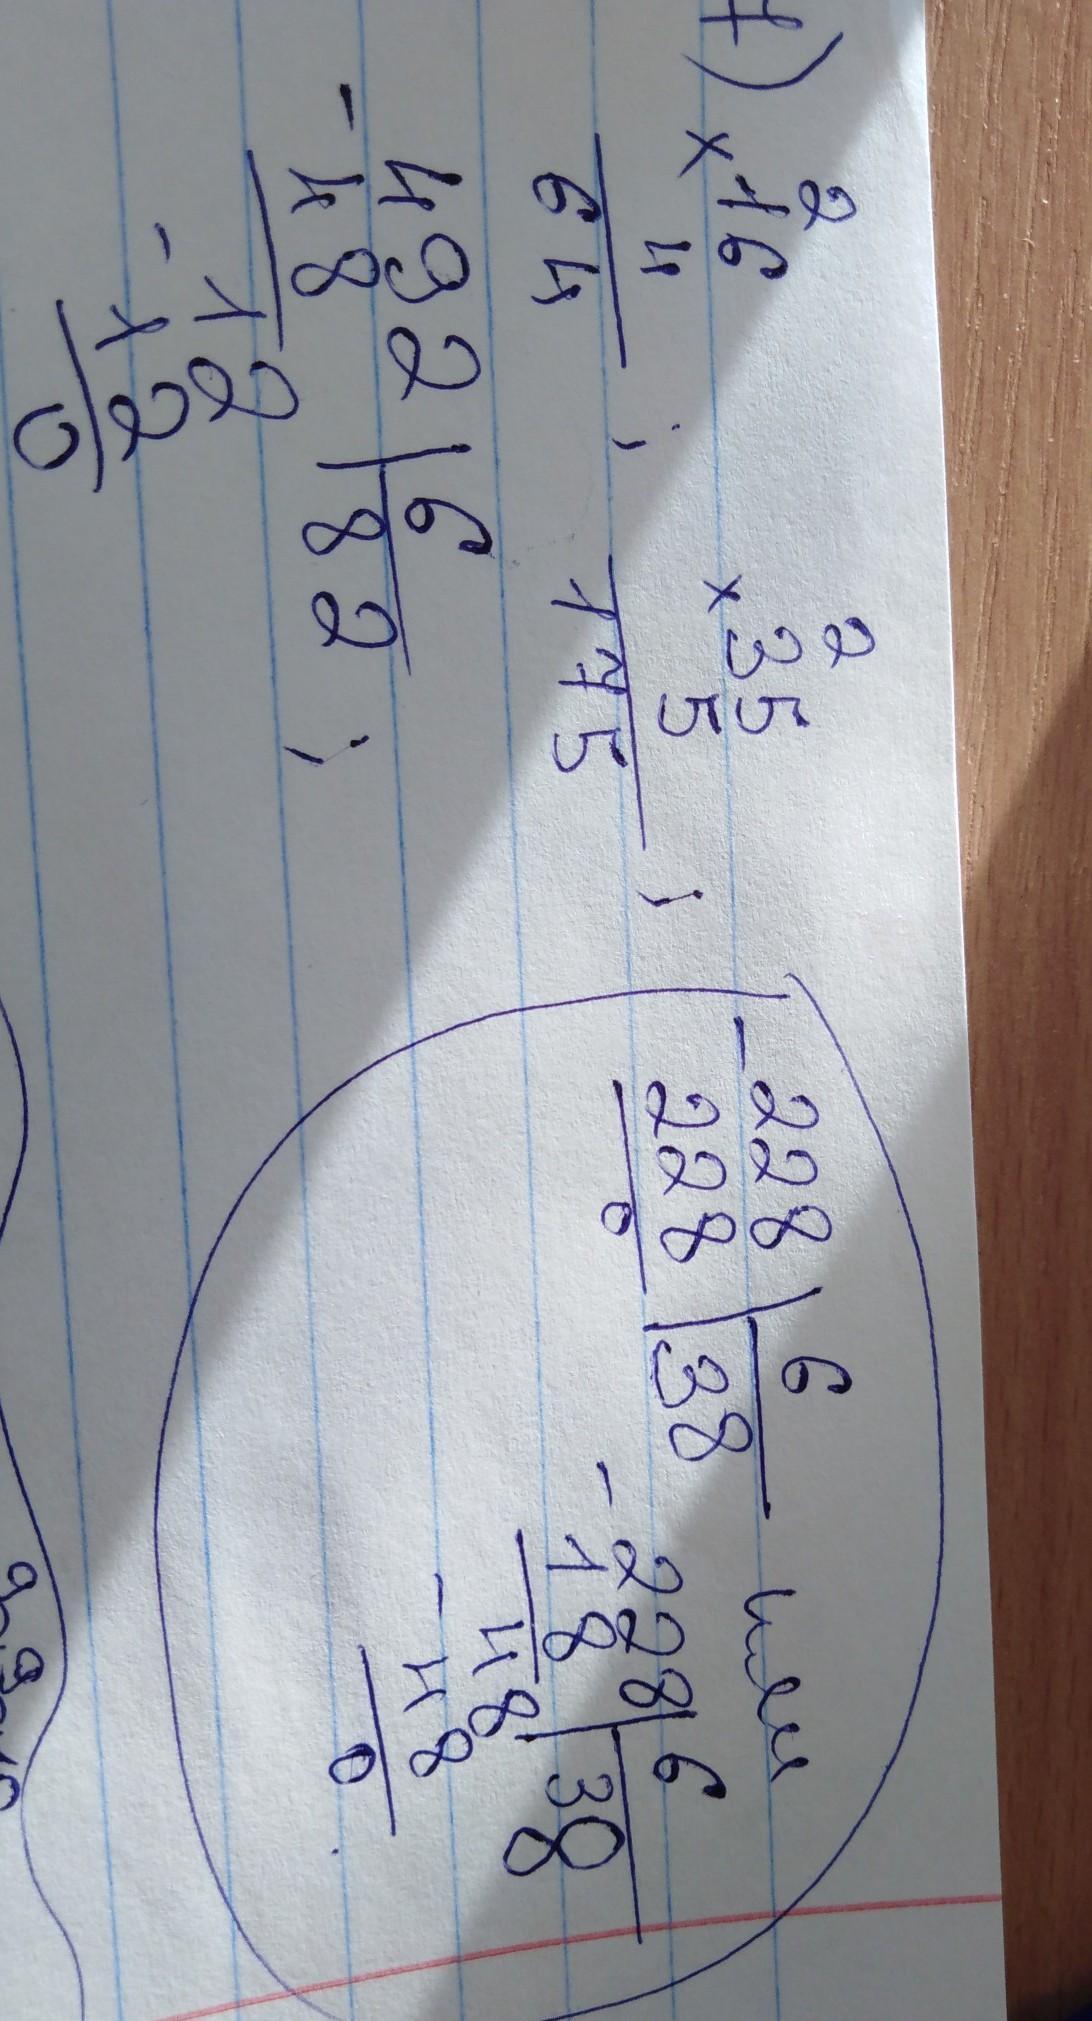 7)
2
×16
4
64 ;
2
×35
5
175 ;
-228|6
228|38
0
или
-228|6
18|38
48
-48
0
-492|6
48|82 ;
-12
12
0